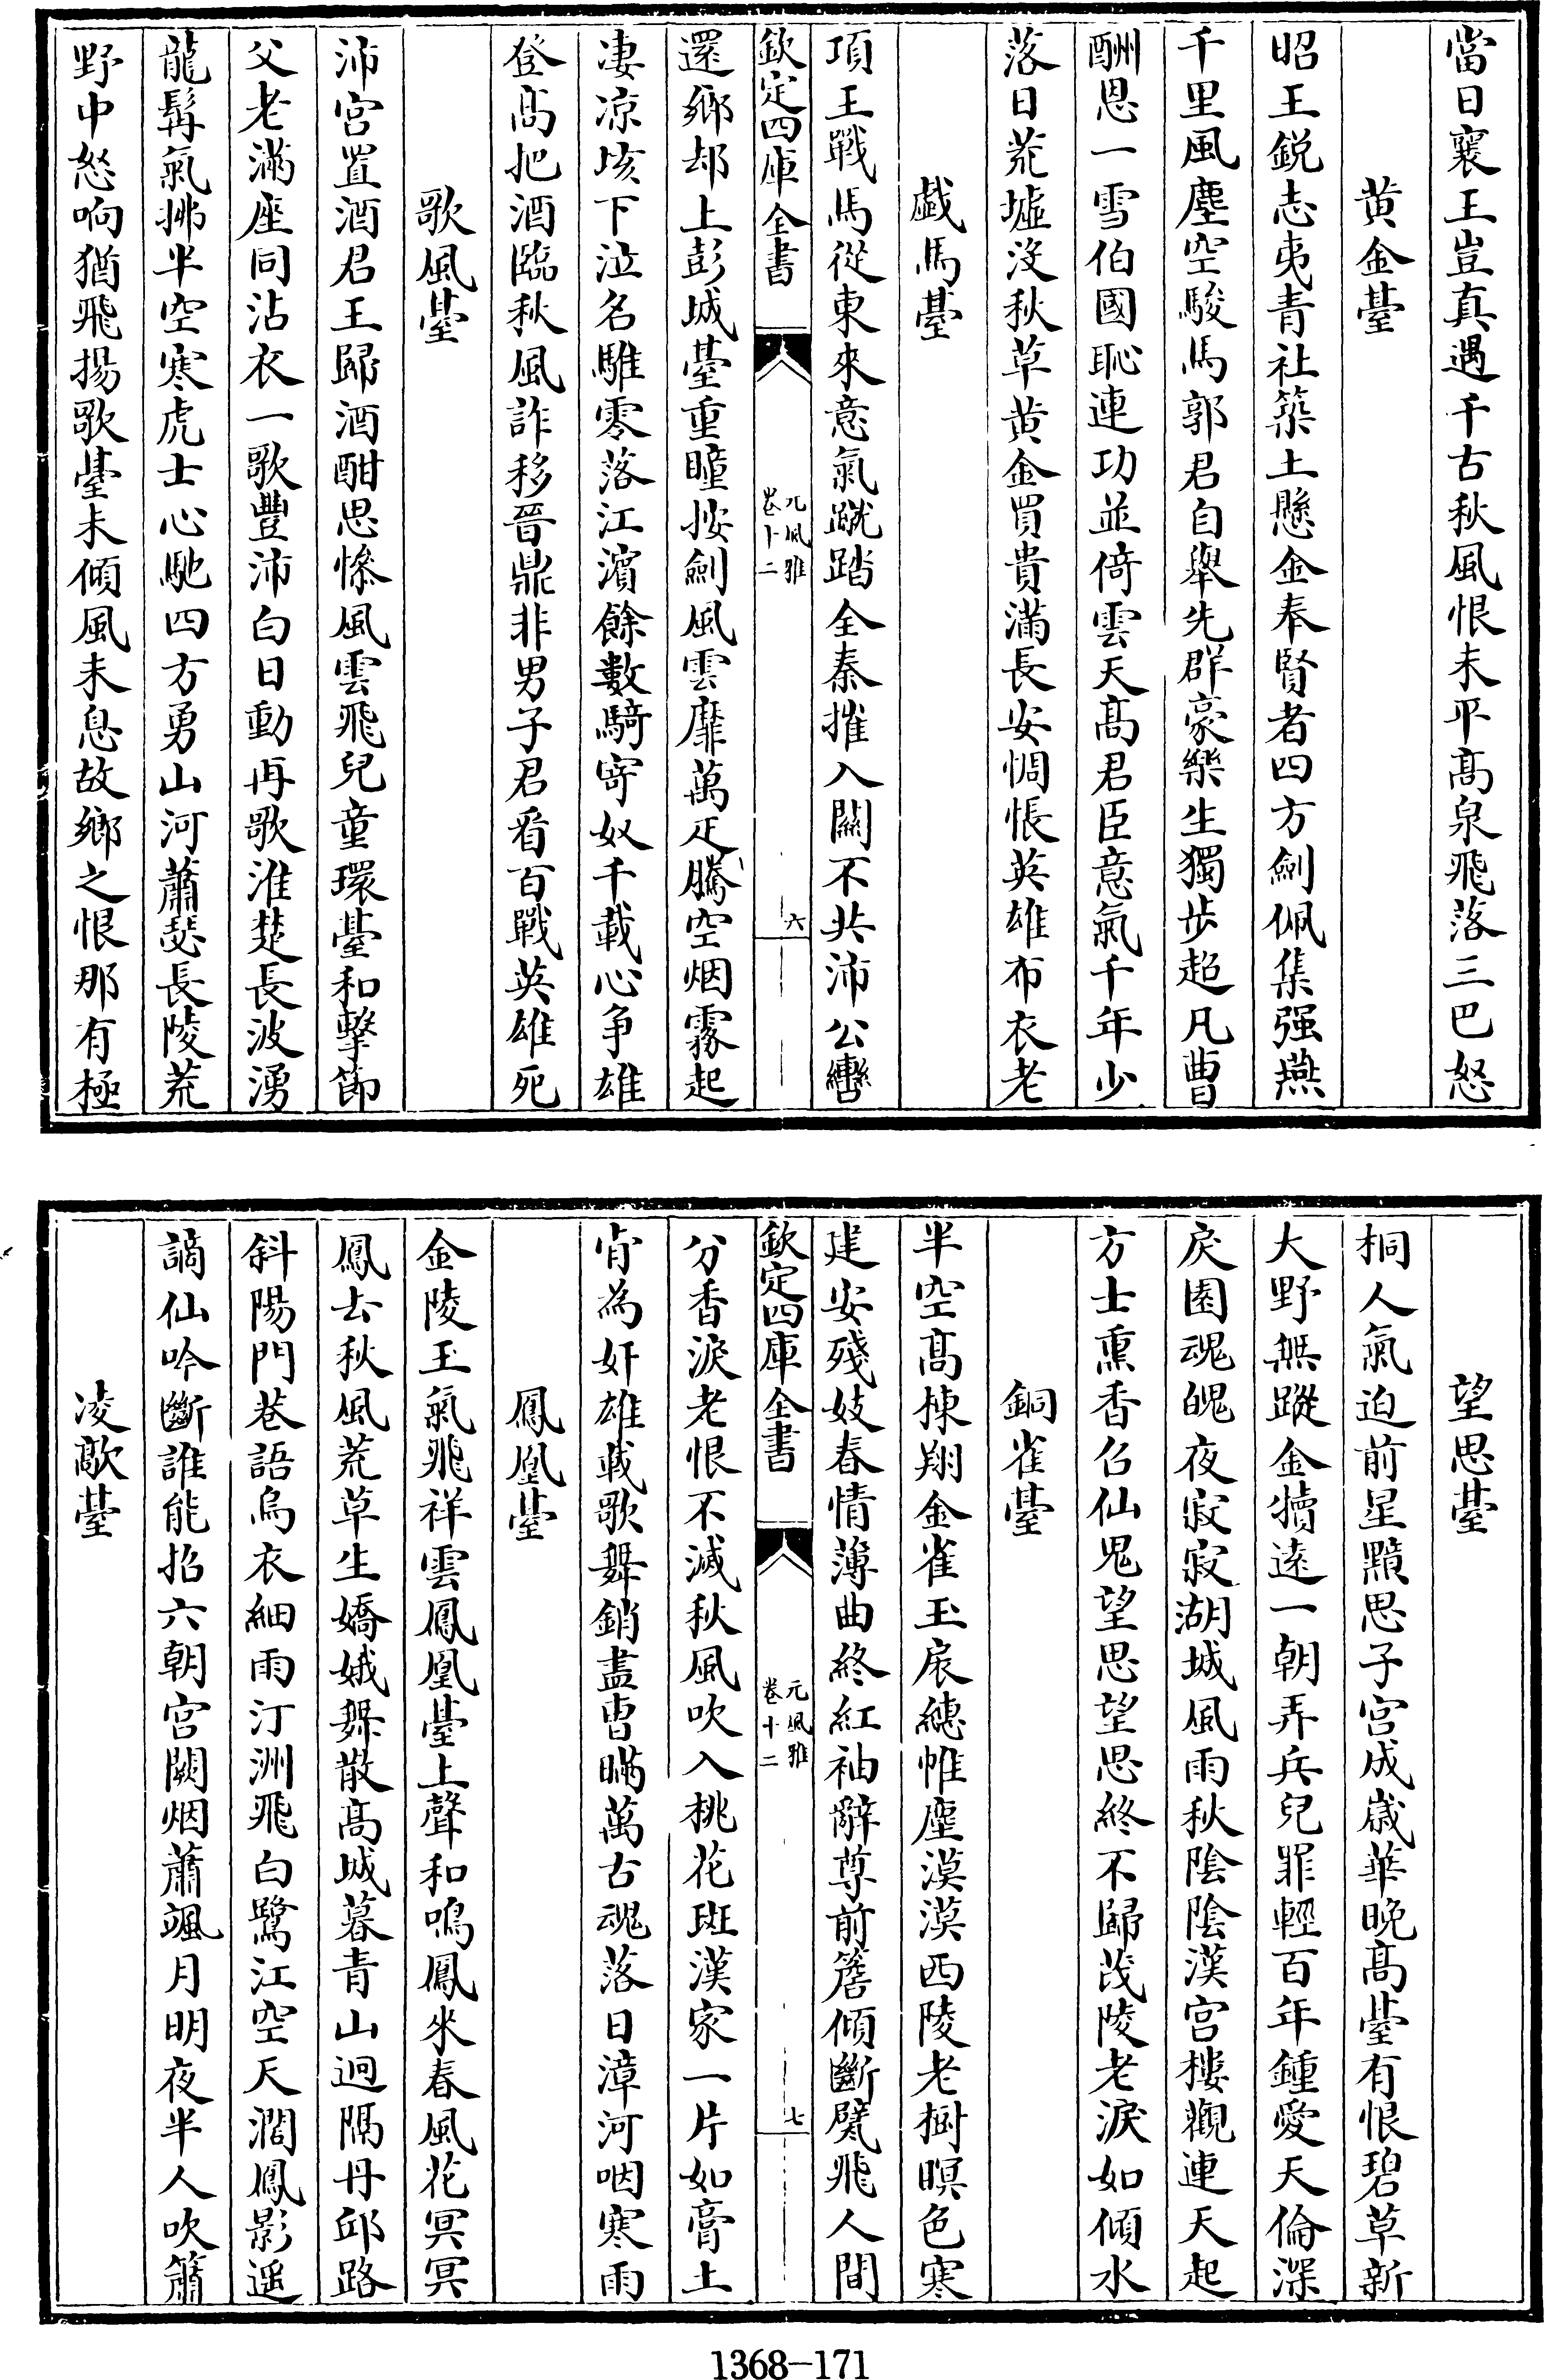 當日襄王豈真遇千古秋風恨未平髙泉飛落三巴怒
黄金臺
昭王鋭志夷青社築土懸金奉賢者四方劍佩集强燕
千里風塵空駿馬郭君自舉先群豪樂生獨步超凡曹
酬恩一雪伯國恥連功並倚雲天髙君臣意氣千年少
落日荒墟沒秋草黄金買貴滿長安惆悵英雄布衣老
戱馬臺
項王戰馬從東來意氣蹴踏全秦摧入關不共沛公轡
欽定四庫全書
元風雅
卷十二
六
還鄉却上彭城臺重瞳按劍風雲靡萬疋騰空烟霧起
凄凉垓下泣名騅零落江濱餘數騎寄奴千載心争雄
登髙把酒臨秋風詐移晉鼎非男子君看百戰英雄死
歌風臺
沛宫置酒君王歸酒酣思慘風雲飛兒童環臺和擊節
父老滿座同沾衣一歌豐沛白日動再歌淮楚長波湧
龍髯氣拂半空寒虎士心馳四方勇山河蕭瑟長陵荒
野中怒响猶飛揚歌臺未傾風未息故鄉之恨那有極
望思臺
桐人氣迫前星黯思子宫成嵗華晚髙臺有恨碧草新
大野無蹤金犢逺一朝弄兵兒罪輕百年鍾愛天倫深
戾園魂魄夜寂寂湖城風雨秋陰陰漢宫樓觀連天起
方士熏香召仙鬼望思望思終不歸茂陵老淚如傾水
銅雀臺
半空髙棟翔金雀玉扆繐帷塵漠漠西陵老樹暝色寒
建安殘妓春情薄曲終紅袖辭尊前簷傾斷甓飛人間
欽定四庫全書
元風雅
卷十二
七
分香淚老恨不滅秋風吹入桃花斑漢家一片如膏土
肯為奸雄載歌舞銷盡曹瞞萬古魂落日漳河咽寒雨
鳳凰臺
金陵王氣飛祥雲鳳凰臺上聲和鳴鳳來春風花冥冥
鳳去秋風荒草生嬌娥舞散髙城暮青山迥隔丹邱路
斜陽門巷語烏衣細雨汀洲飛白鷺江空天濶鳳影遥
謫仙吟斷誰能招六朝宫闕烟蕭颯月明夜半人吹簫
凌歊臺
1368-171